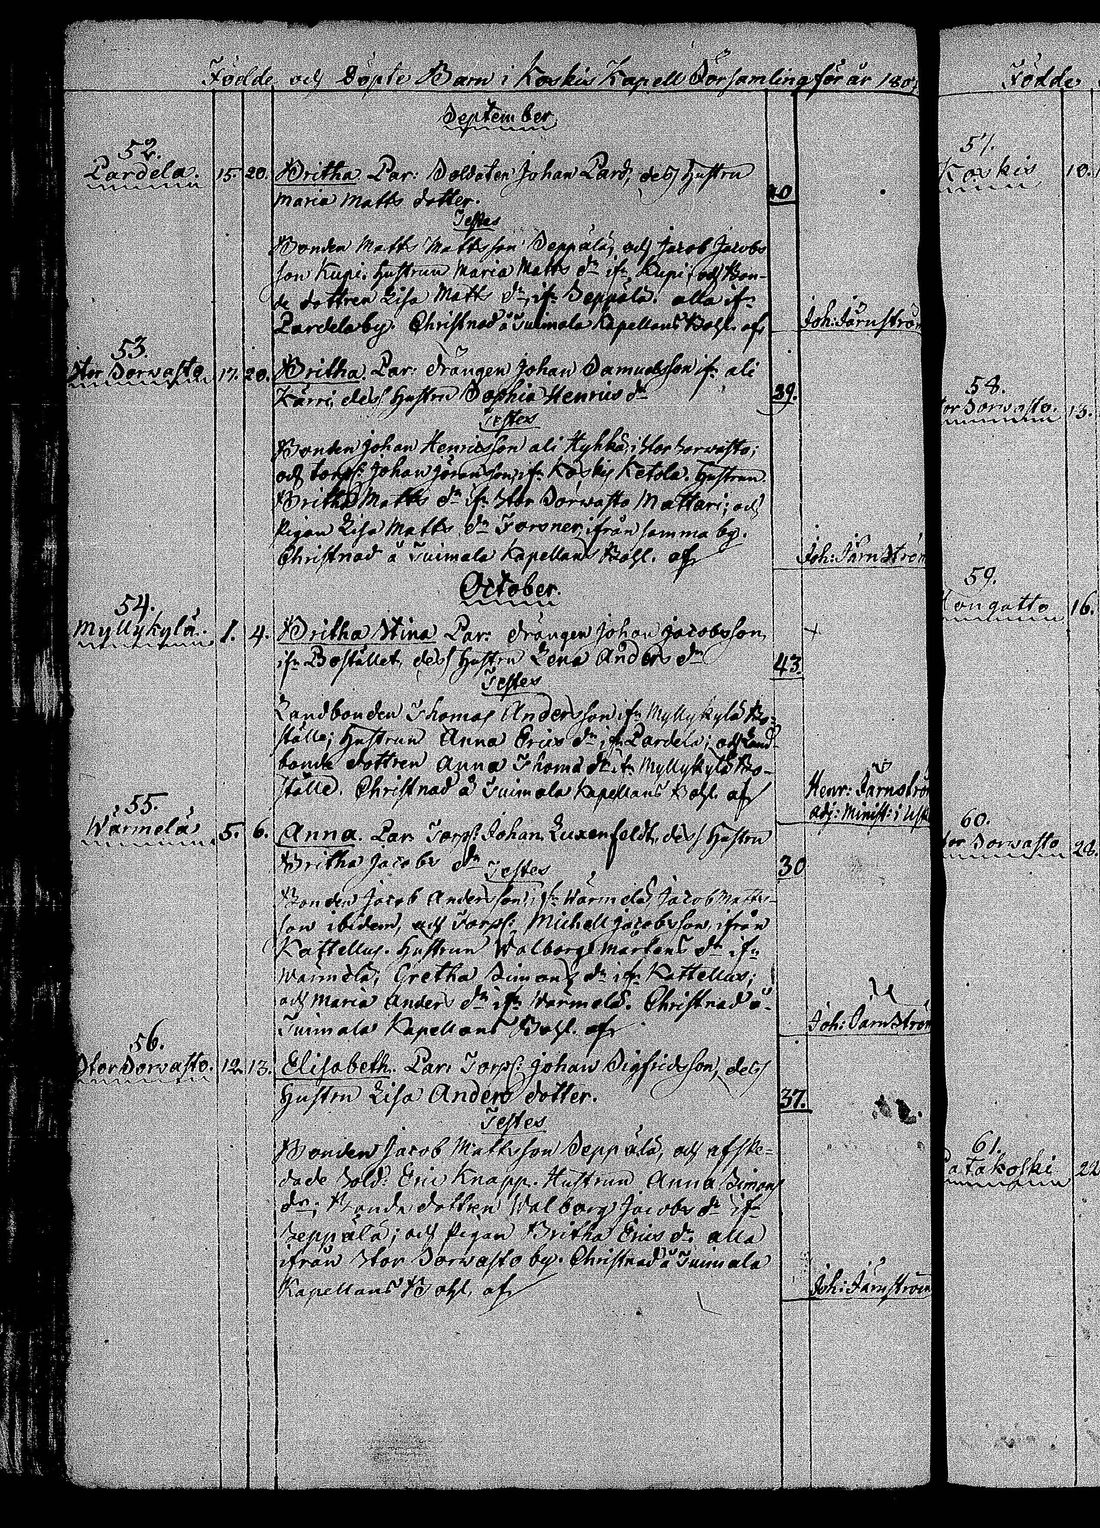 Födde och Döpte Barn i Koskis Kapell Församling för år 180
September
52.
Pardela. 15. 20. Britha Par: Soldaten Johan Pard, dess Hustru
Maria Matts dotter. 40
Testes
Bonden Matts Mattsson Seppälä, och Jacob Jacobs
son Kupi. Hustrun Maria Matts dr ifr Kupi, och Bon-
de dottren Lisa Matts dr ifr Seppälä. alla ifr
Pardela by. Christnad å Tuimala Kapellans Bohl. af Joh: Järnström
53.
Stor Sorvasto 17. 20. Britha Par: Drängen Johan Samuelsson ifr ali
Kärri, dess Hustru Sophia Henrics dr 39.
Testes
Bonden Johan Henricsson ali Hyhkä, i Stor Sorvasto;
och torp: Johan Jöransson, ifr Koskis Ketola. Hustrun
Britha Matts dr ifr Stor Sorvasto Mattari; och
Pigan Lisa Matts dr Forsner, ifrån samma by.
Christnad å Tuimala Kapellans Bohl. af Joh: Järnström
October.
54.
Myllykylä. 1. 4. Britha Stina Par: Drängen Johan Jacobsson,
ifr Bostället, dess Hustru Lena Anders dr 43.
Testes
Landbonden Thomas Andersson ifr Myllykylä Bo-
ställe; Hustrun Anna Erics dr ifr Pardela; och Land-
bonde dottren Anna Thoms dr ifr Myllykylä Bo-
ställe. Christnad å Tuimala Kapellans Bohl. af Henr: Järnström
adj: Minist: i Usk
55.
Wärmelä 5. 6. Anna. Par. Torp: Johan Luxenfeldt, dess Hustru
Britha Jacobs dr 30
Testes
Bonden Jacob Andersson, ifr Wärmelä, Jacob Matts-
son ibidem, och Torp: Michell Jacobsson, ifrån
Kattellus. Hustrun Walborg Mårtens dr ifr
Wärmelä, Gretha Simons dr ifr Kattellus;
och Maria Anders dr ifr Wärmelä. Christnad å
Tuimala Kapellans Bohl. af Joh: Järnström
56.
Stor Sorvasto. 12. 13. Elisabeth. Par: Torp: Johan Sigfridsson, dess
Hustru Lisa Anders dotter. 37.
Testes
Bonden Jacob Mattsson Seppälä, och afske-
dade Sold: Eric Knapp. Hustrun Anna Simons
dr; Bonde dottren Walborg Jacobs dr ifr
Seppälä; och Pigan Britha Erics dr alla
ifrån Stor Sorvasto by. Christnad å Tuimala
Kapellans Bohl. af Joh: Järnström
Födde
57.
Koskis 10.
58.
tor Sorvasto. 13.
59.
Tongatto 16.
60.
tor Sorvasto 28.
61.
Patakoski 22